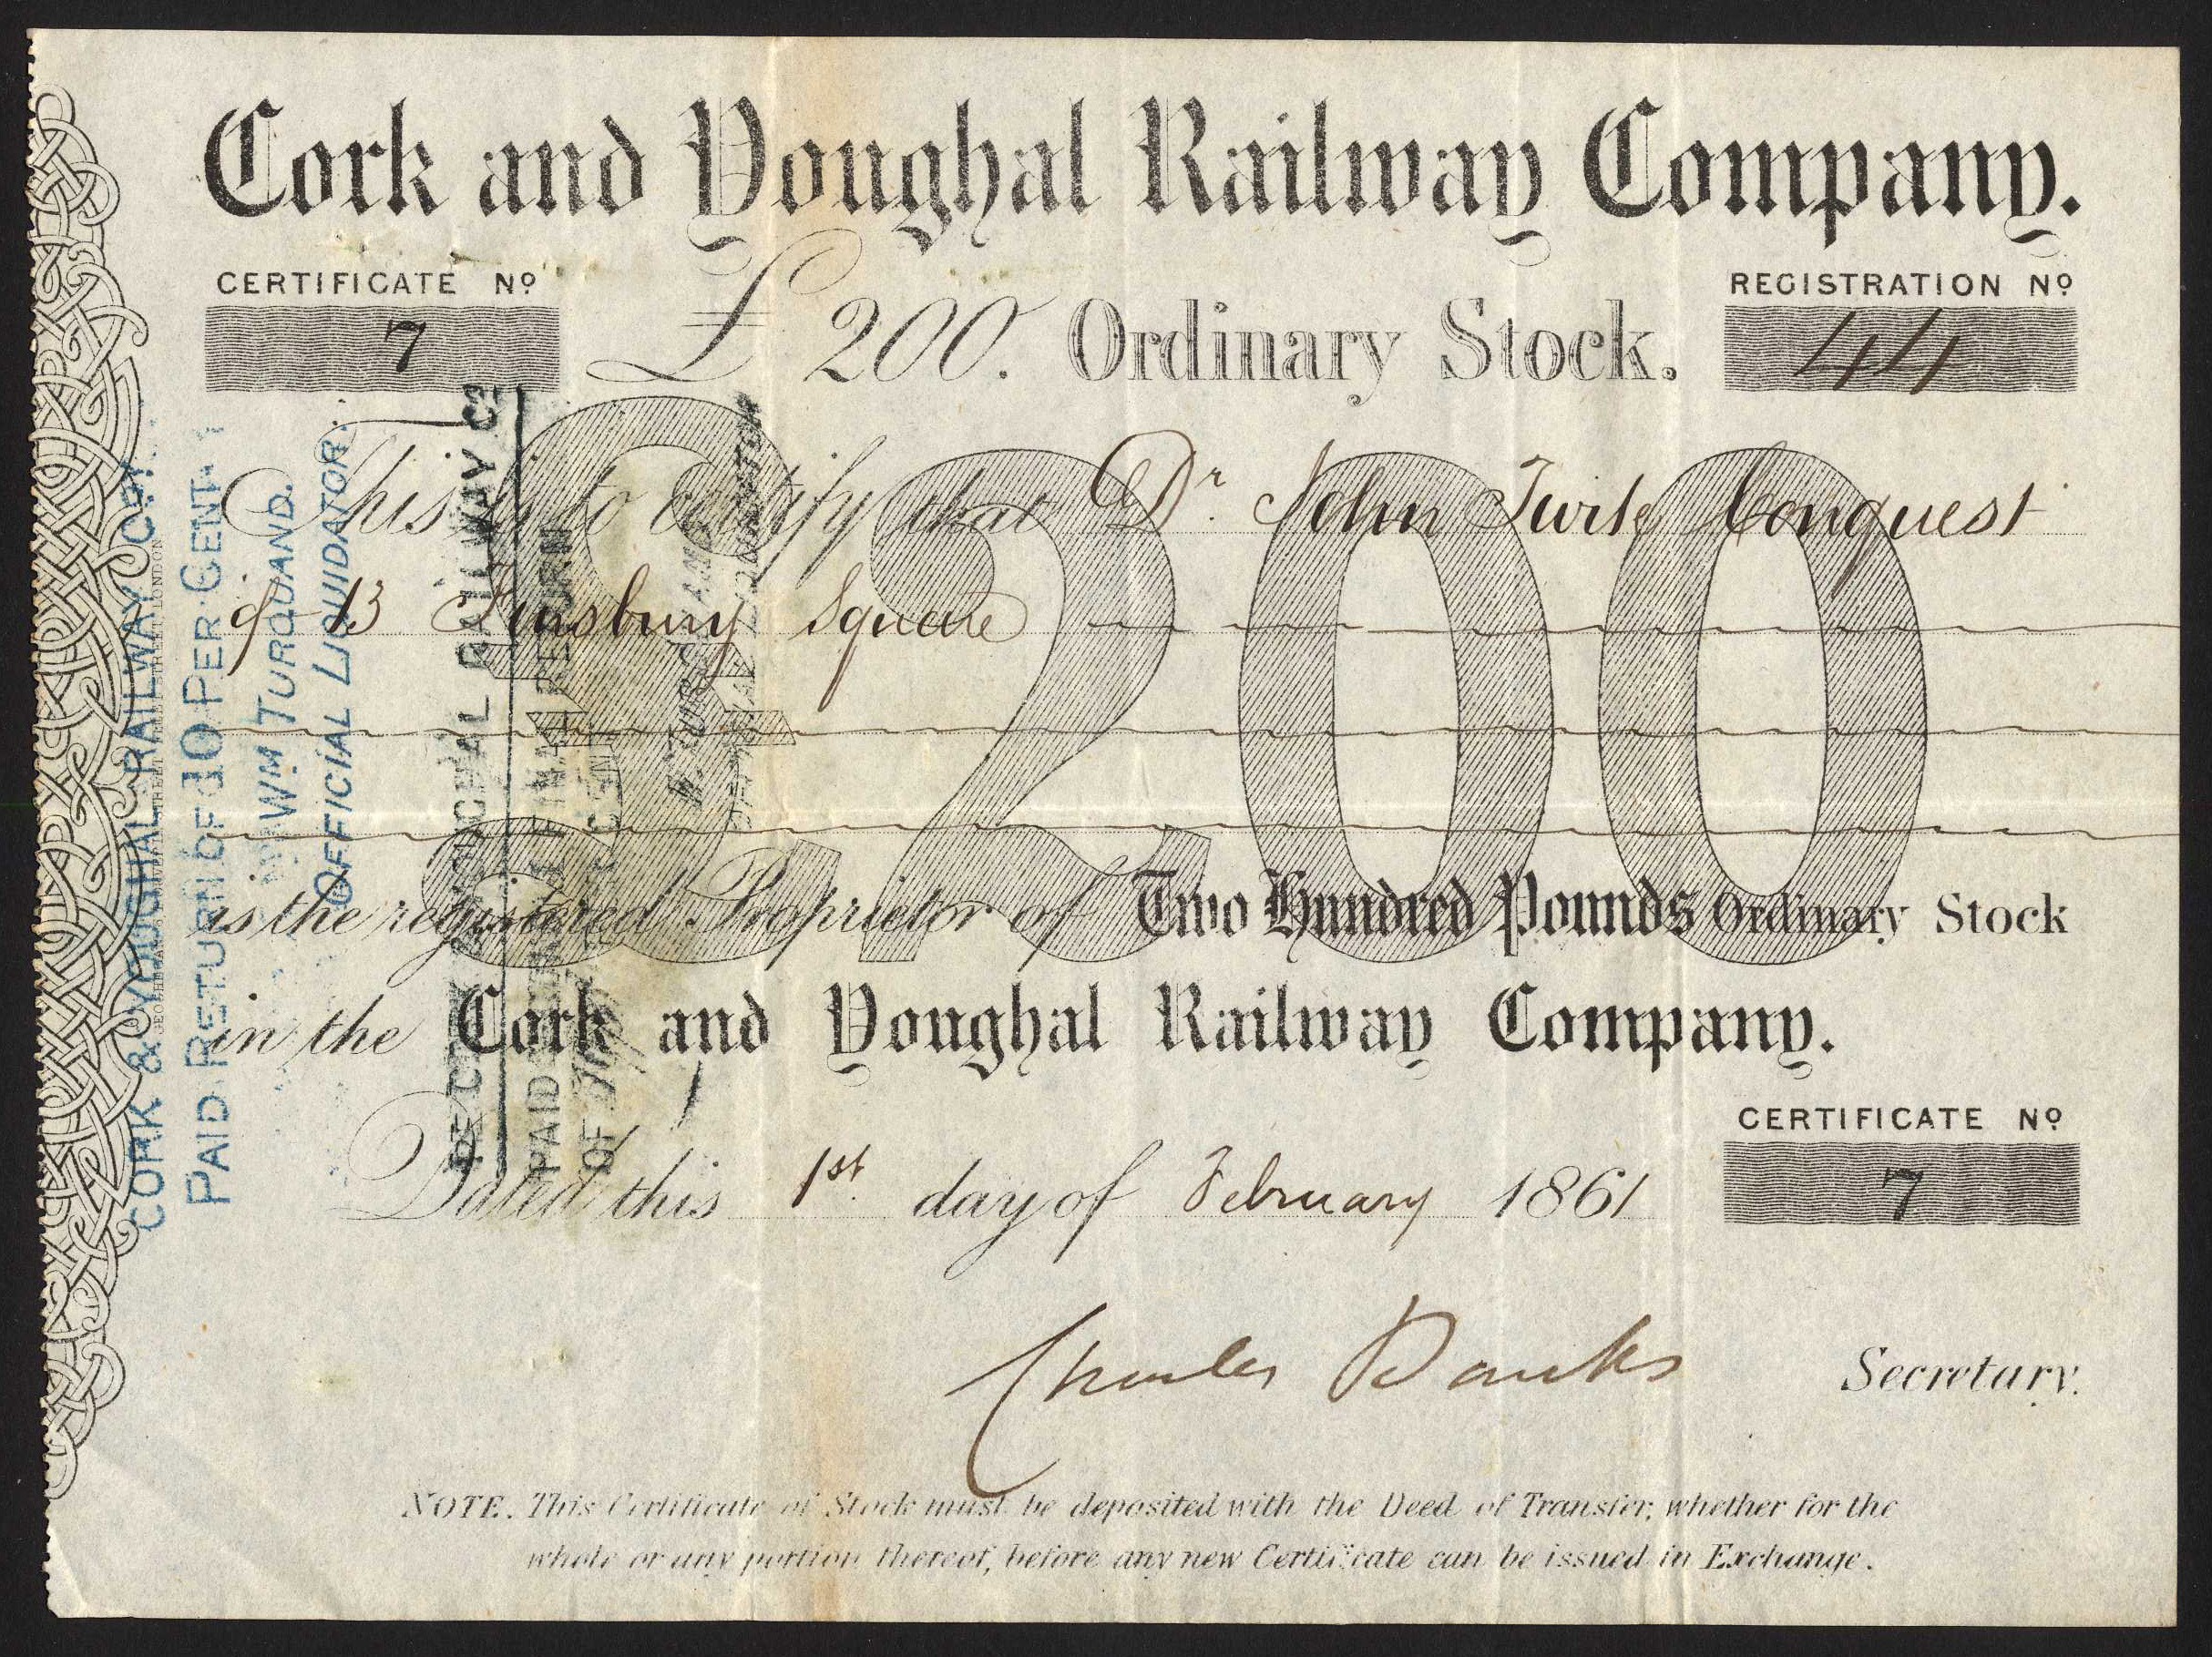 Cork and Youghal Railway Company.
CERTIFICATE Nº
7
£200. Ordinary Stock.
REGISTRATION Nº
44
£200
This is to certify that Dr. John Twisle Conquest
of 13 Finsbury Square
is the registered Proprietor of Two Hundred Pounds Ordinary Stock
in the Cork and Youghal Railway Company.
Dated this 1st day of February 1861
CERTIFICATE Nº
7
Charles Banks
Secretary.
NOTE. This Certificate of Stock must be deposited with the Deed of Transfer, whether for the
whole or any portion thereof, before any new Certificate can be issued in Exchange.
CORK & YOUGHAL RAILWAY COY.
PAID RETURN OF 10 PER CENT
WM TURQUAND.
OFFICIAL LIQUIDATOR.
RAILWAY Co
PAID FINAL RETURN
OF
LONDON